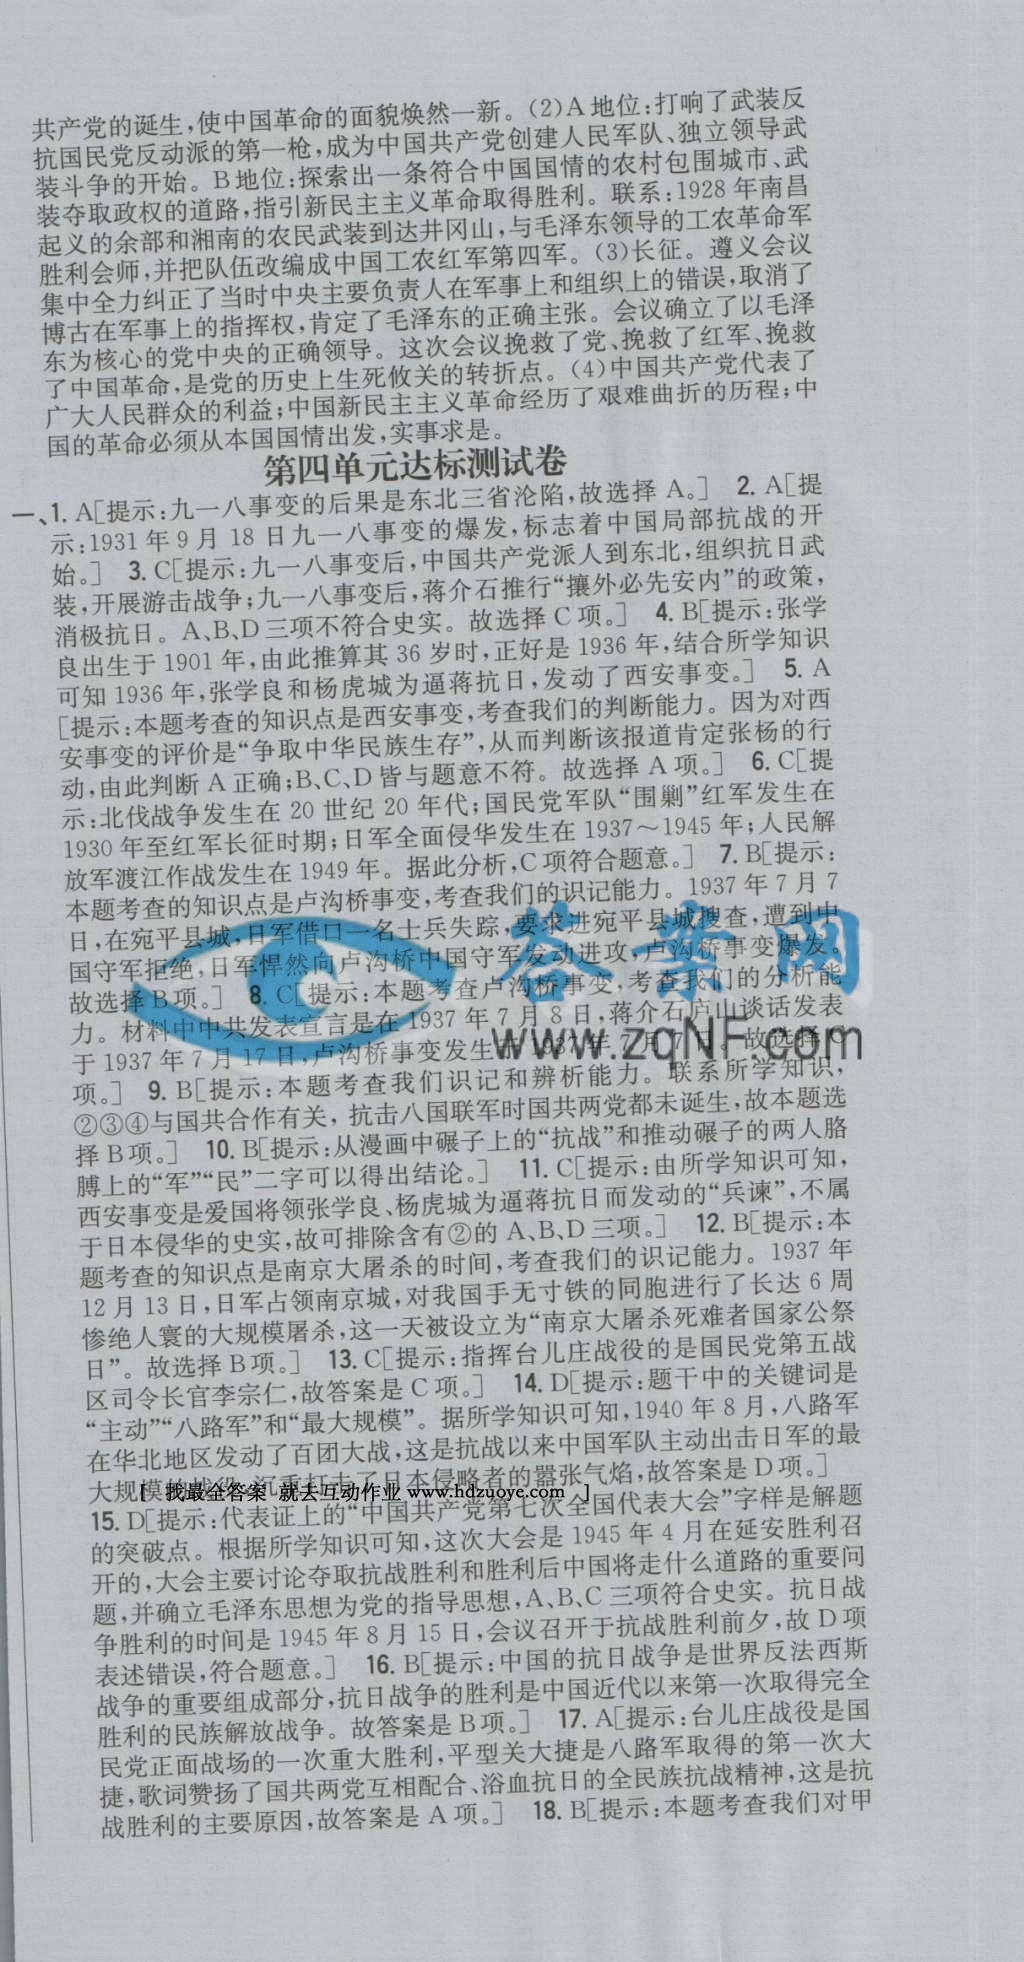 共产党的诞生,使中国革命的面貌焕然一新。(2)A 地位:打响了武装反
抗国民党反动派的第一枪,成为中国共产党创建人民军队、独立领导武
装斗争的开始。B 地位:探索出一条符合中国国情的农村包围城市、武
装夺取政权的道路,指引新民主主义革命取得胜利。联系:1928 年南昌
起义的余部和湘南的农民武装到达井冈山,与毛泽东领导的工农革命军
胜利会师,并把队伍改编成中国工农红军第四军。(3)长征。遵义会议
集中全力纠正了当时中央主要负责人在军事上和组织上的错误,取消了
博古在军事上的指挥权,肯定了毛泽东的正确主张。会议确立了以毛泽
东为核心的党中央的正确领导。这次会议挽救了党、挽救了红军、挽救
了中国革命,是党的历史上生死攸关的转折点。(4)中国共产党代表了
广大人民群众的利益;中国新民主主义革命经历了艰难曲折的历程;中
国的革命必须从本国国情出发,实事求是。
第四单元达标测试卷
一、1. A[提示:九一八事变的后果是东北三省沦陷,故选择 A。] 2. A[提
示:1931 年 9 月 18 日九一八事变的爆发,标志着中国局部抗战的开
始。] 3. C[提示:九一八事变后,中国共产党派人到东北,组织抗日武
装,开展游击战争;九一八事变后,蒋介石推行“攘外必先安内”的政策,
消极抗日。A、B、D 三项不符合史实。故选择 C 项。] 4. B[提示:张学
良出生于 1901 年,由此推算其 36 岁时,正好是 1936 年,结合所学知识
可知 1936 年,张学良和杨虎城为逼蒋抗日,发动了西安事变。] 5. A
[提示:本题考查的知识点是西安事变,考查我们的判断能力。因为对西
安事变的评价是“争取中华民族生存”,从而判断该报道肯定张杨的行
动,由此判断 A 正确;B、C、D 皆与题意不符。故选择 A 项。] 6. C[提
示:北伐战争发生在 20 世纪 20 年代;国民党军队“围剿”红军发生在
1930 年至红军长征时期;日军全面侵华发生在 1937～1945 年;人民解
放军渡江作战发生在 1949 年。据此分析,C 项符合题意。] 7. B[提示:
本题考查的知识点是卢沟桥事变,考查我们的识记能力。1937 年 7 月 7
日,在宛平县城,日军借口一名士兵失踪,要求进宛平县城搜查,遭到中
国守军拒绝,日军悍然向卢沟桥中国守军发动进攻,卢沟桥事变爆发。
故选择 B 项。] 8. C[提示:本题考查卢沟桥事变,考查我们的分析能
力。材料中中共发表宣言是在 1937 年 7 月 8 日,蒋介石庐山谈话发表
于 1937 年 7 月 17 日,卢沟桥事变发生在 1937 年 7 月 7 日。故选择 C
项。] 9. B[提示:本题考查我们识记和辨析能力。联系所学知识,
②③④与国共合作有关, 抗击八国联军时国共两党都未诞生,故本题选
择 B 项。] 10. B[提示:从漫画中碾子上的“抗战”和推动碾子的两人胳
膊上的“军”“民”二字可以得出结论。] 11. C[提示:由所学知识可知,
西安事变是爱国将领张学良、杨虎城为逼蒋抗日而发动的“兵谏”,不属
于日本侵华的史实,故可排除含有②的 A、B、D 三项。] 12. B[提示:本
题考查的知识点是南京大屠杀的时间,考查我们的识记能力。1937 年
12 月 13 日,日军占领南京城,对我国手无寸铁的同胞进行了长达 6 周
惨绝人寰的大规模屠杀,这一天被设立为“南京大屠杀死难者国家公祭
日”。故选择 B 项。] 13. C[提示:指挥台儿庄战役的是国民党第五战
区司令长官李宗仁,故答案是 C 项。] 14. D[提示:题干中的关键词是
“主动”“八路军”和“最大规模”。据所学知识可知,1940 年 8 月,八路军
在华北地区发动了百团大战,这是抗战以来中国军队主动出击日军的最
大规模的战役,沉重打击了日本侵略者的嚣张气焰,故答案是 D 项。]
[ 找最全答案 就去互动作业 www.hdzuoye.com ]
15. D[提示:代表证上的“中国共产党第七次全国代表大会”字样是解题
的突破点。根据所学知识可知,这次大会是 1945 年 4 月在延安胜利召
开的,大会主要讨论夺取抗战胜利和胜利后中国将走什么道路的重要问
题,并确立毛泽东思想为党的指导思想,A、B、C 三项符合史实。抗日战
争胜利的时间是 1945 年 8 月 15 日,会议召开于抗战胜利前夕,故 D 项
表述错误,符合题意。] 16. B[提示:中国的抗日战争是世界反法西斯
战争的重要组成部分,抗日战争的胜利是中国近代以来第一次取得完全
胜利的民族解放战争。故答案是 B 项。] 17. A[提示:台儿庄战役是国
民党正面战场的一次重大胜利,平型关大捷是八路军取得的第一次大
捷,歌词赞扬了国共两党互相配合、浴血抗日的全民族抗战精神,这是抗
战胜利的主要原因,故答案是 A 项。] 18. B[提示:本题考查我们对甲
答案网
www.zqNF.com